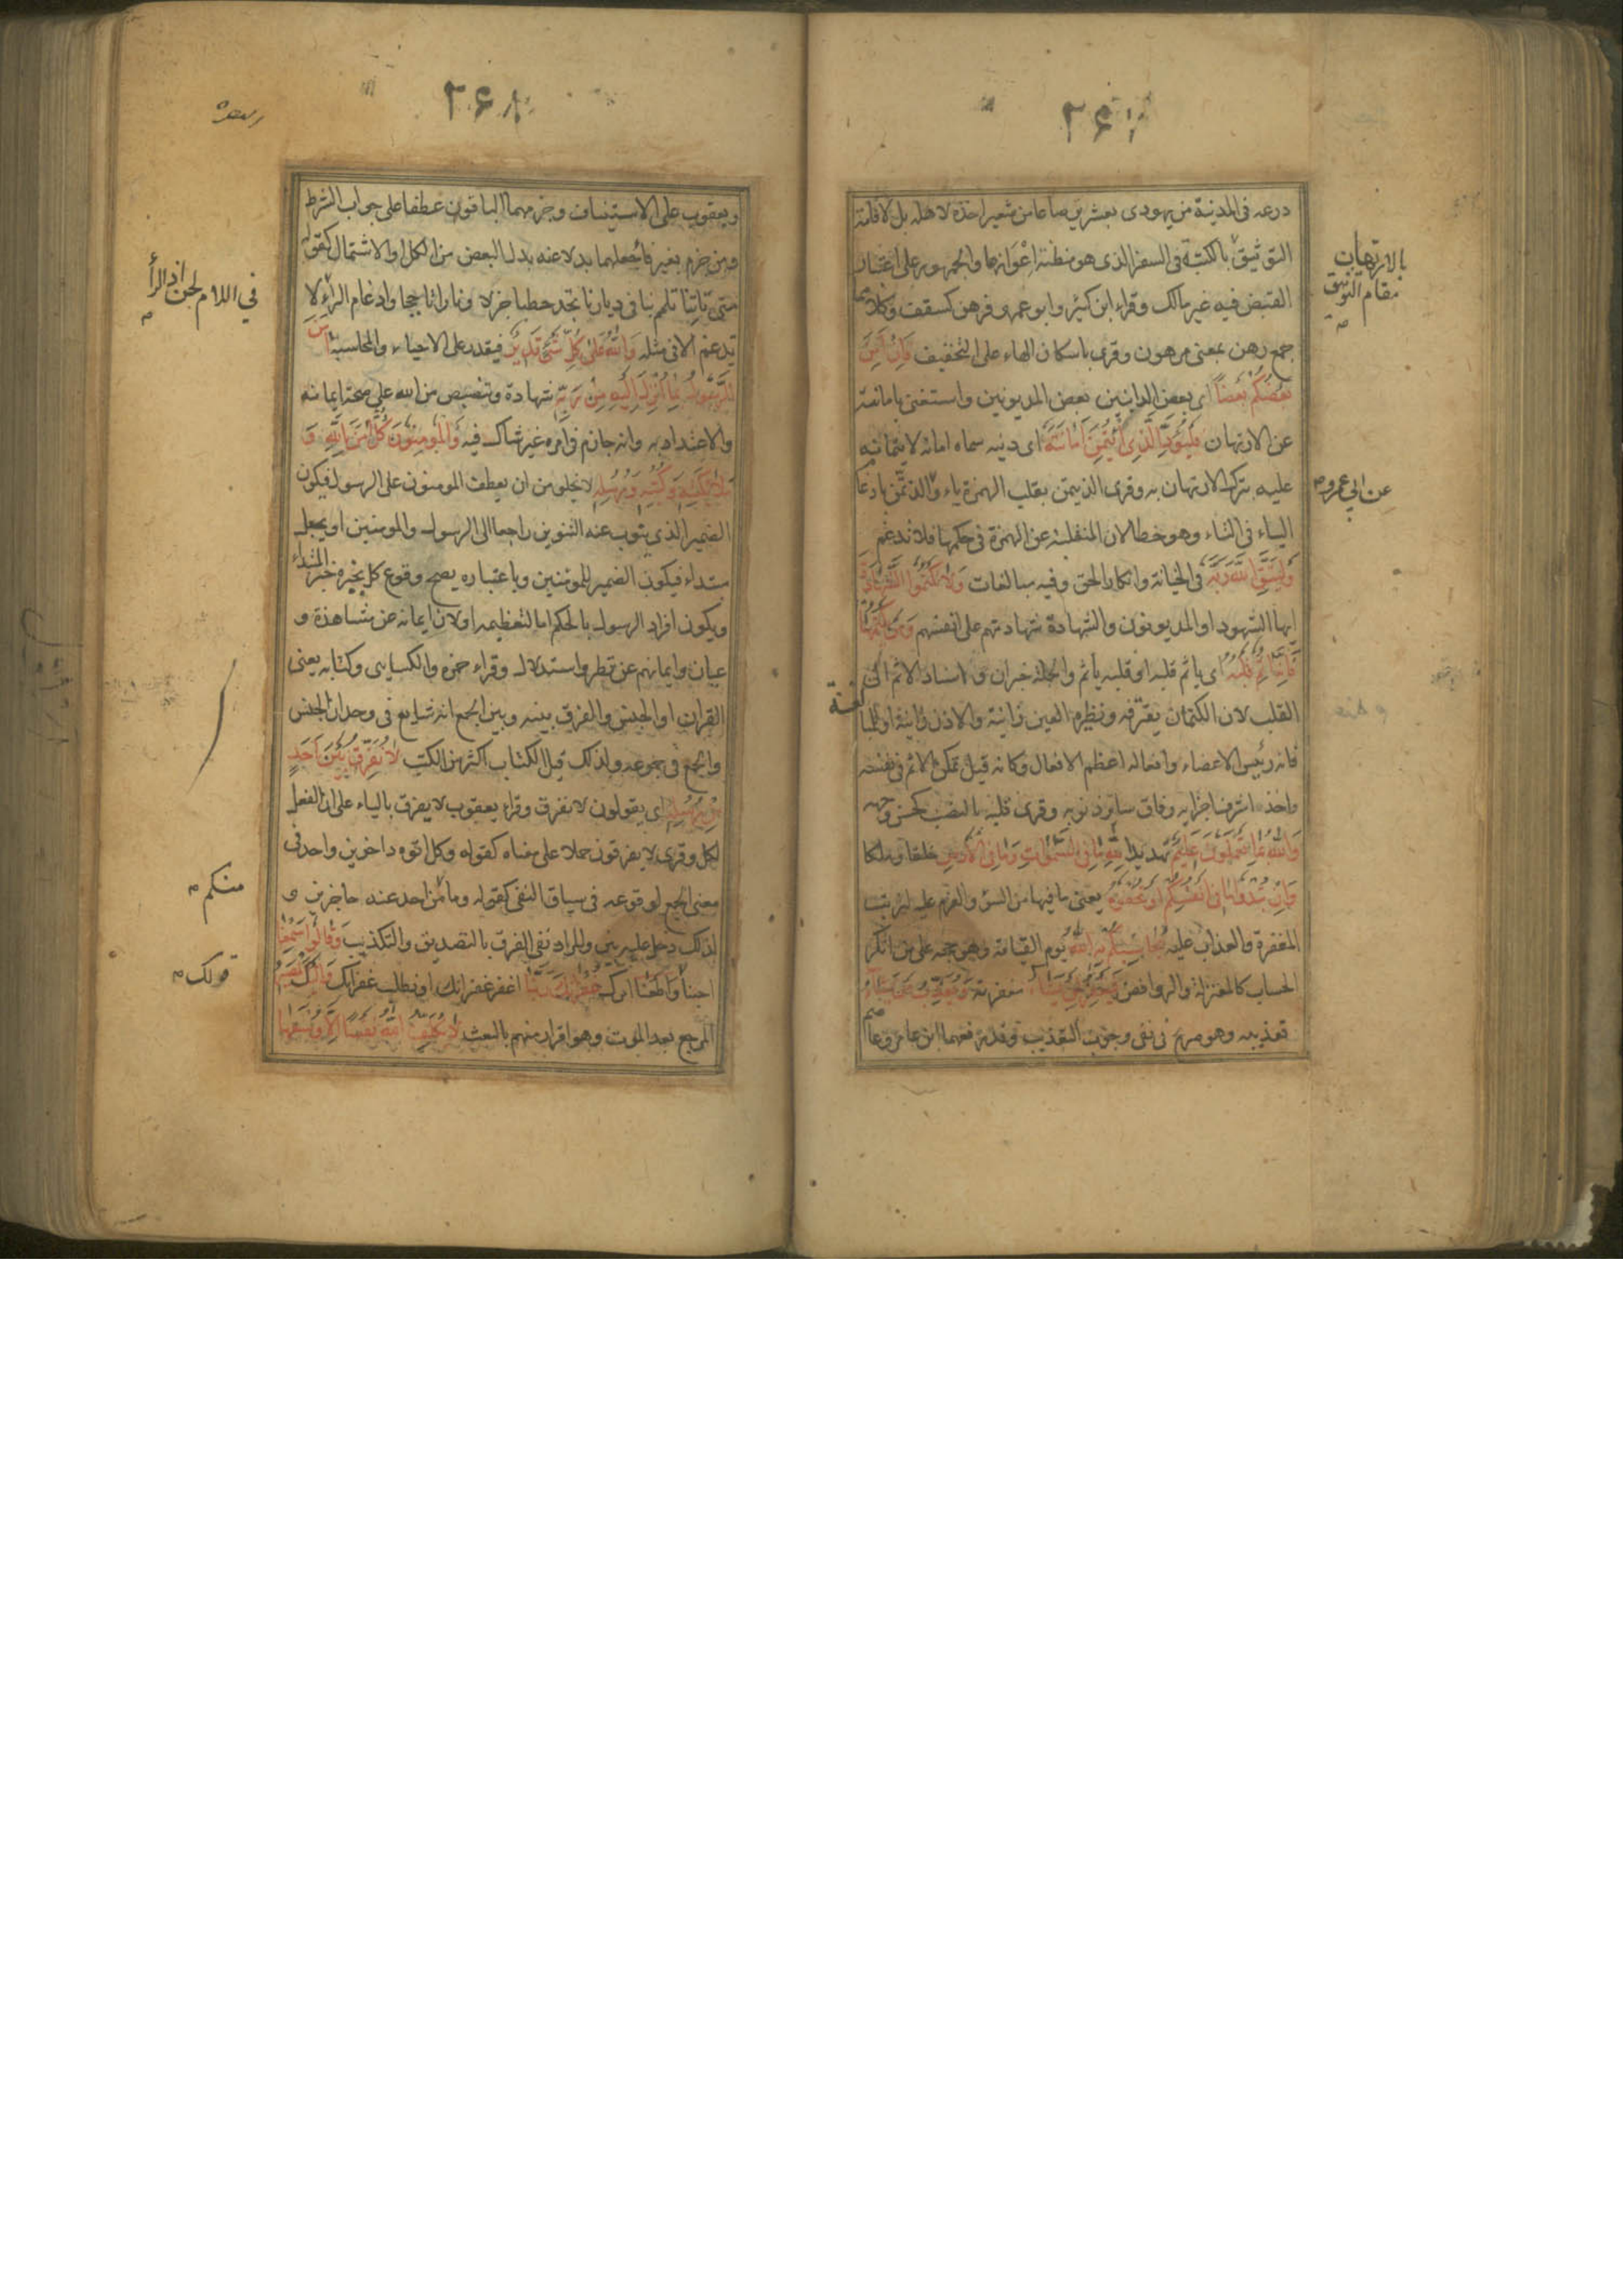 ۲۶۱
درعه فى المدينة من يهودى بعشرين صاعا من شعير اخذه لاهله بل لاقامة
التوثيق بالكتبة فى السفر الذى هو مظنة اعوازها والجمهور على اعتبار
القبض فيه غير مالك وقراء ابن كثير وابو عمرو فرهن كسقف وكلاهما
جمع رهن بمعنى مرهون وقرى باسكان الهاء على التخفيف فَاِنْ اَمِنَ
بَعْضُكُمْ بَعْضًا اى بعض الداينين بعض المديونين واستغنى بامانته
عن الارتهان فَلْيُؤَدِّ الَّذِى اؤْتُمِنَ اَمَانَتَهُ اى دينه سماه امانة لايتمانه
عليه بترك الارتهان به وقرى الذيتمن بقلب الهمزة ياء والذتمن بادغام
الياء فى التاء وهو خطا لان المنقلبة عن الهمزة فى حكمها فلا تدغم
وَلْيَتَّقِ اللّٰهَ رَبَّهُ فى الخيانة وانكار الحق وفيه مبالغات وَلَا تَكْتُمُوا الشَّهَادَةَ
ايها الشهود او المديونون والشهادة شهادتهم على انفسهم وَمَنْ يَكْتُمْهَا
فَاِنَّهُ اٰثِمٌ قَلْبُهُ اى ياثم قلبه او قلبه ياثم والجملة خبر ان و اسناد الاثم الى
القلب لان الكتمان يقترفه ونظيره العين زانية والاذن زانية او للمبالغة
فانه رئيس الاعضاء وافعاله اعظم الافعال وكانه قيل تمكن الاثم فى نفسه
واخذ اشرف اجزايه وفاق ساير ذنوبه وقرى قلبه بالنصب كحسن وجهه
وَاللّٰهُ بِمَا تَعْمَلُونَ عَلِيمٌ تهديد لِلّٰهِ مَا فِى السَّمٰوَاتِ وَمَا فِى الْاَرْضِ خلقا وملكا
وَاِنْ تُبْدُوا مَا فِى اَنْفُسِكُمْ اَوْ تُخْفُوهُ يعنى ما فيها من السوء والعزم عليه لترتب
المغفرة والعذاب عليه يُحَاسِبْكُمْ بِهِ اللّٰهُ يوم القيامة وهو حجة على من انكر
الحساب كالمعتزلة والروافض فَيَغْفِرُ لِمَنْ يَشَاءُ مغفرته وَيُعَذِّبُ مَنْ يَشَاءُ
تعذيبه وهو صريح فى نفى وجوب التعذيب وقد رفعهما ابن عامر وعاصم
بالارتهان
مقام التوثيق
عن ابي عمرو
۲۶۸
ويعقوب على الاستيناف وجزمهما الباقون عطفا على جواب الشرط
ومن جزم بغير فا جعلهما بدلا عنه بدل البعض من الكل او الاشتمال كقوله
متى تاتنا تلمم بنا فى ديارنا تجد حطبا جزلا ونارا تاججا وادغام الراء لا
تدغم الا فى مثله وَاللّٰهُ عَلٰى كُلِّ شَىْءٍ قَدِيرٌ فيقدر على الاحياء والمحاسبة اٰمَنَ
الرَّسُولُ بِمَا اُنْزِلَ اِلَيْهِ مِنْ رَبِّهِ شهادة وتنصيص من الله على صحة ايمانه
والاعتداد به وانه جازم فى امره غير شاك فيه وَالْمُؤْمِنُونَ كُلٌّ اٰمَنَ بِاللّٰهِ وَ
مَلَائِكَتِهِ وَكُتُبِهِ وَرُسُلِهِ لا يخلو من ان يعطف المومنون على الرسول فيكون
الضمير الذى ينوب عنه التنوين راجعا الى الرسول والمومنين او يجعل
مبتداء فيكون الضمير للمومنين وباعتباره يصح وقوع كل بخبره خبر المبتداء
ويكون افراد الرسول بالحكم اما لتعظيمه او لان ايمانه عن مشاهدة و
عيان وايمانهم عن نظر واستدلال وقراء حمزه والكسايى وكتابه يعنى
القران او الجنس والفرق بينه وبين الجمع انه شايع فى وحدان الجنس
والجمع فى جموعه ولذلك قيل الكتاب اكثر من الكتب لَا نُفَرِّقُ بَيْنَ اَحَدٍ
مِنْ رُسُلِهِ اى يقولون لا نفرق وقراء يعقوب لا يفرق بالياء على ان الفعل
لكل وقرى لا يفرقون حملا على معناه كقوله وكل اتوه داخرين واحد فى
معنى الجمع لوقوعه فى سياق النفى كقوله وما من احد عنه حاجزين و
لذلك دخل عليه بين والمراد نفى الفرق بالتصديق والتكذيب وَقَالُوا سَمِعْنَا
اجبنا وَاَطَعْنَا امرك غُفْرَانَكَ رَبَّنَا اغفر غفرانك او نطلب غفرانك وَاِلَيْكَ الْمَصِيرُ
المرجع بعد الموت وهو اقرار منهم بالبعث لَا يُكَلِّفُ اللّٰهُ نَفْسًا اِلَّا وُسْعَهَا
في اللام لحن اذ الرأ
منكم